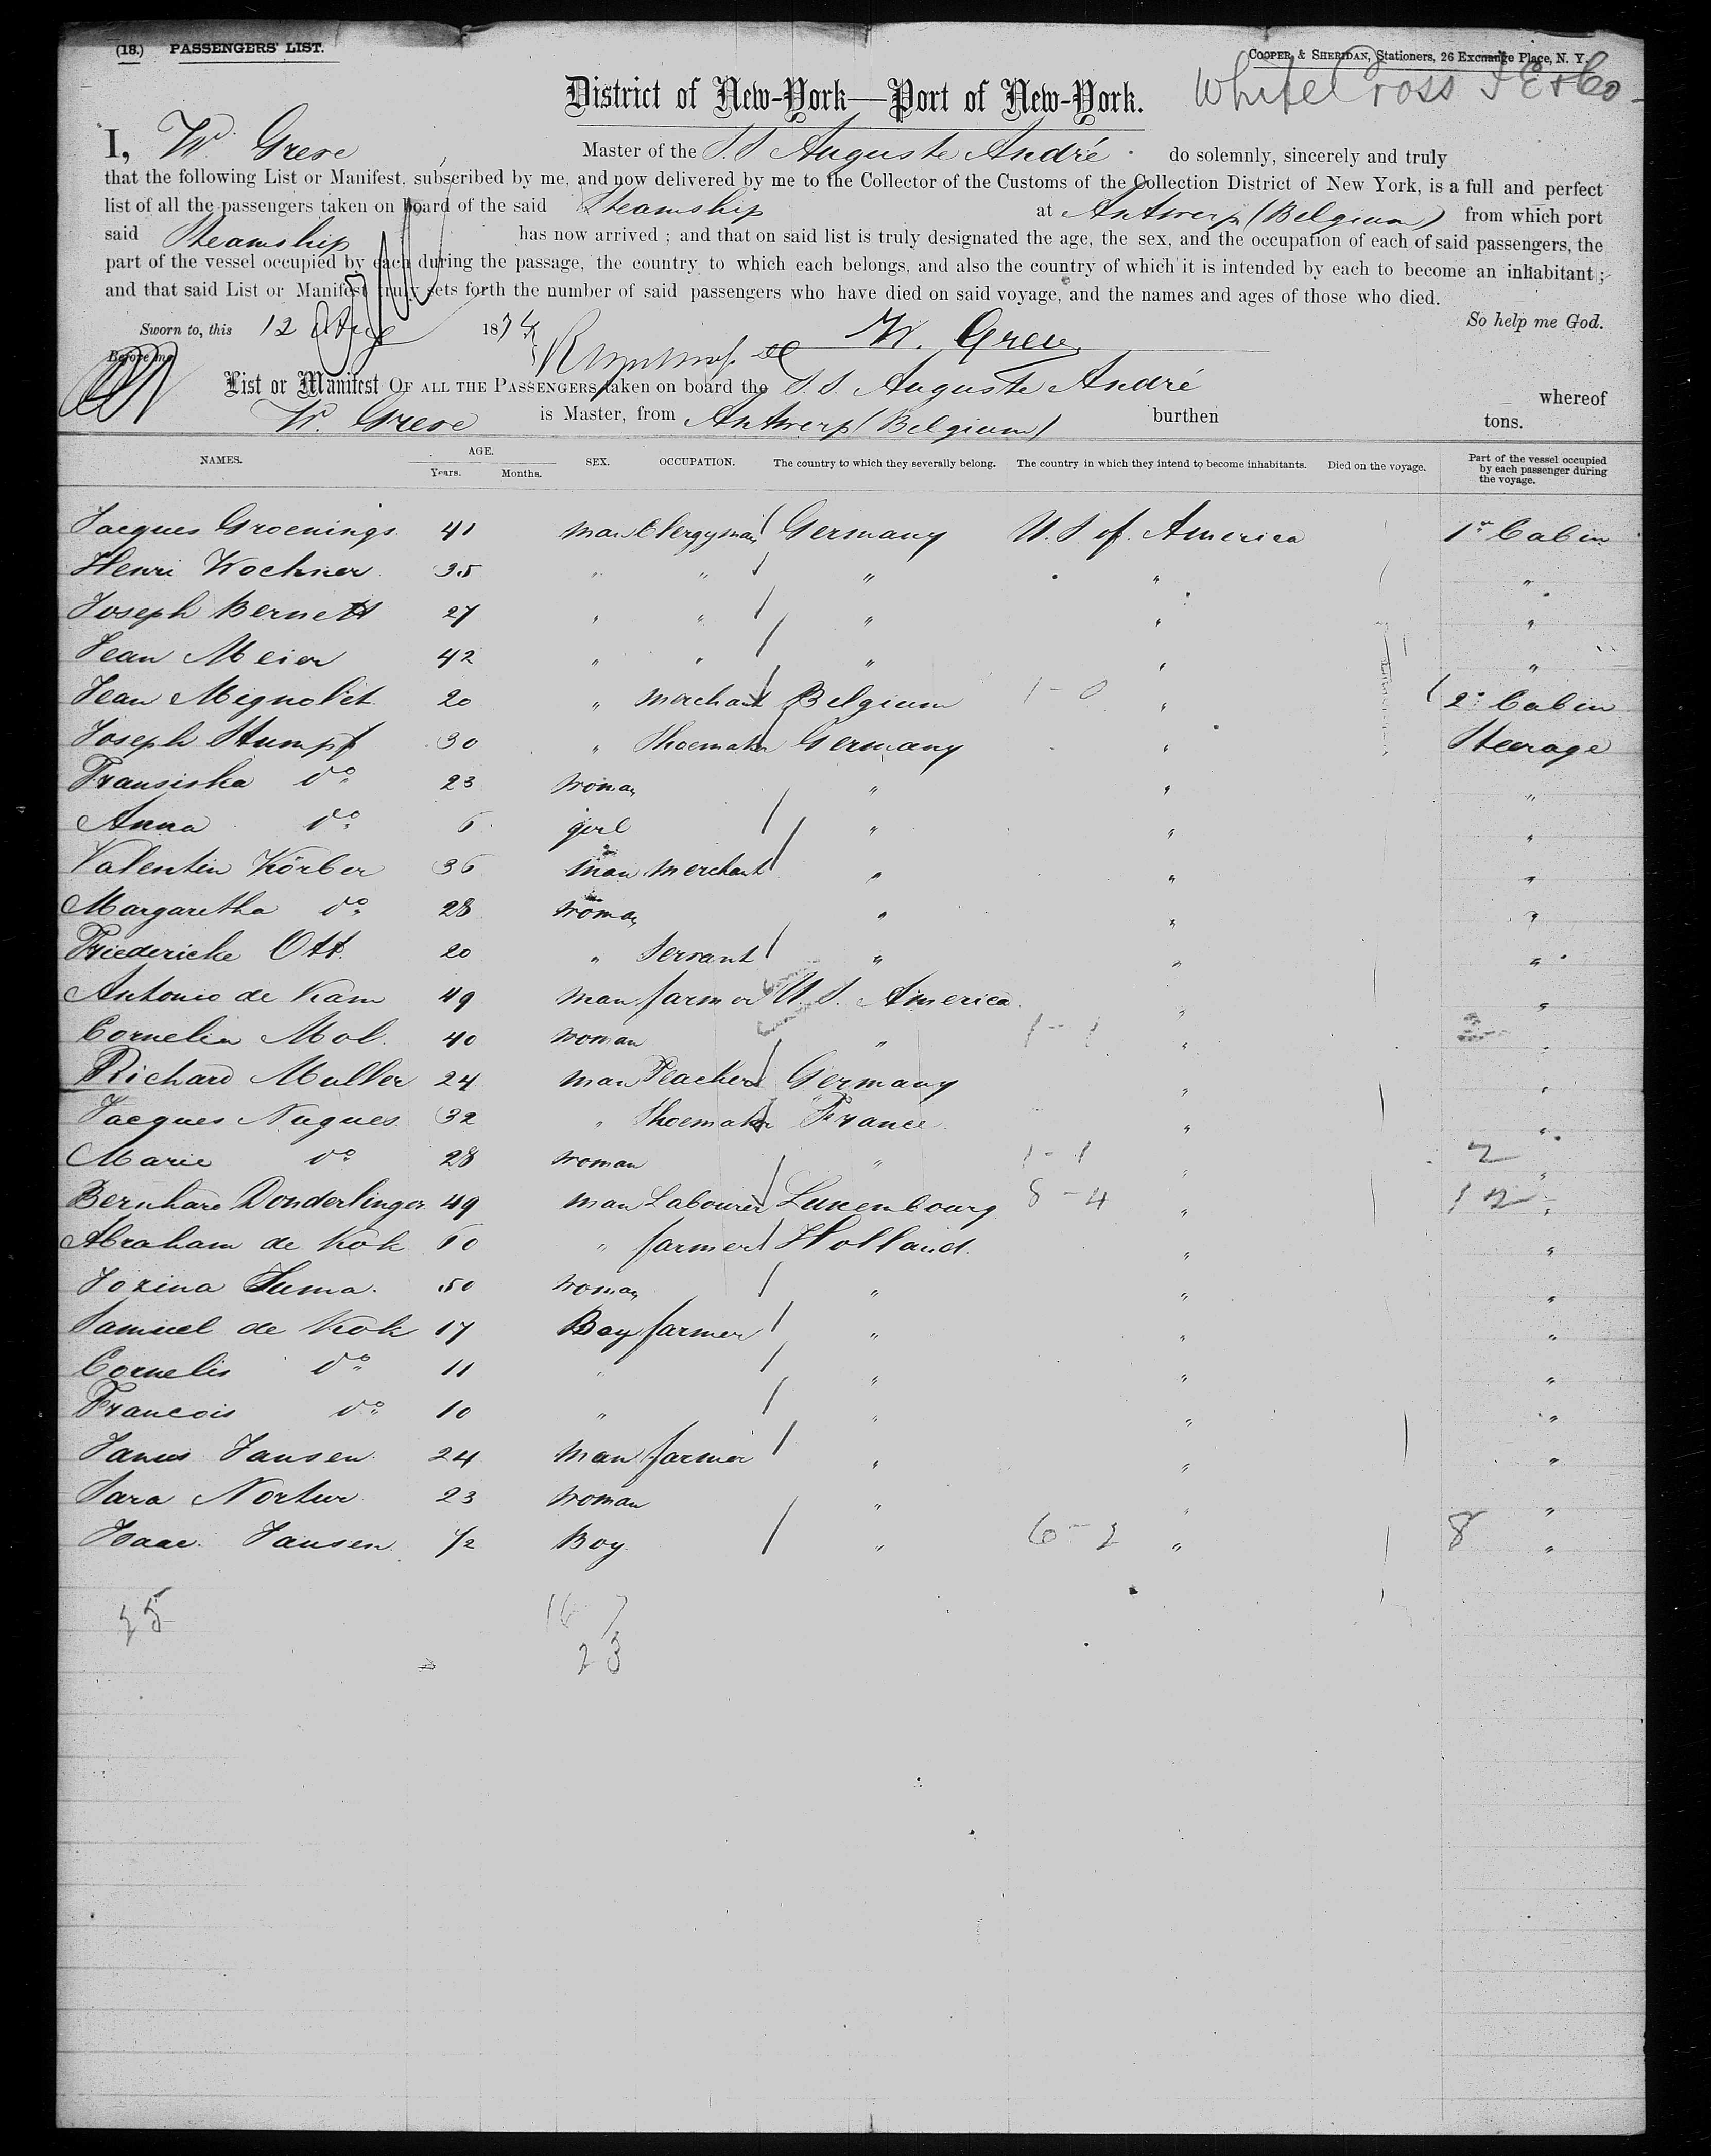 (18.) PASSENGERS' LIST.
COOPER & SHERIDAN, Stationers, 26 Exchange Place, N. Y.
White Cross
District of New-York—Port of New-York.
I, W. Greve Master of the S.S Auguste André do solemnly, sincerely and truly
that the following List or Manifest, subscribed by me, and now delivered by me to the Collector of the Customs of the Collection District of New York, is a full and perfect
list of all the passengers taken on board of the said Steamship at Antwerp (Belgium) from which port
said Steamship has now arrived ; and that on said list is truly designated the age, the sex, and the occupation of each of said passengers, the
part of the vessel occupied by each during the passage, the country to which each belongs, and also the country of which it is intended by each to become an inhabitant ;
and that said List or Manifest truly sets forth the number of said passengers who have died on said voyage, and the names and ages of those who died.
So help me God.
Sworn to, this 12 Aug 1874 W. Greve
Before me
List or Manifest OF ALL THE PASSENGERS taken on board the S.S. Auguste André whereof
W. Greve is Master, from Antwerp (Belgium) burthen tons.
NAMES. AGE. Years. Months. SEX. OCCUPATION. The country to which they severally belong. The country in which they intend to become inhabitants. Died on the voyage. Part of the vessel occupied by each passenger during the voyage.
Jacques Groenings 41 man Clergyman Germany U.S of America 1r Cabin
Henri Kochner 35 " " " " "
Joseph Bernett 27 " " " " "
Jean Meier 42 " " " " "
Jean Mignolet 20 " merchant Belgium 1-0 " 2e Cabin
Joseph Stumpf 30 " Shoemaker Germany " Steerage
Fransiska do 23 woman " " "
Anna do 6 girl " " "
Valentin Körber 36 man merchant " " "
Margaretha do 28 woman " " "
Friedericke Ott. 20 " Servant " " "
Antonio de Kam 49 man farmer U.S. America " "
Cornelia Mol. 40 woman " 1-1 " "
Richard Muller 24 man Teacher Germany " "
Jacques Nugues 32 " Shoemaker France " "
Marie do 28 woman " 1-1 " 2 "
Bernhard Donderlinger 49 man Labourer Luxembourg 8-4 " 12 "
Abraham de Kok 60 " farmer Holland " "
Jozina Suma. 50 woman " " "
Samuel de Kok 17 Boy farmer " " "
Cornelis do 11 " " " "
Francois do 10 " " " "
Janus Jansen 24 man farmer " " "
Sara Nortur 23 woman " " "
Isaac Jansen 1/2 Boy " 6-2 " 8 "
25 16 7
23